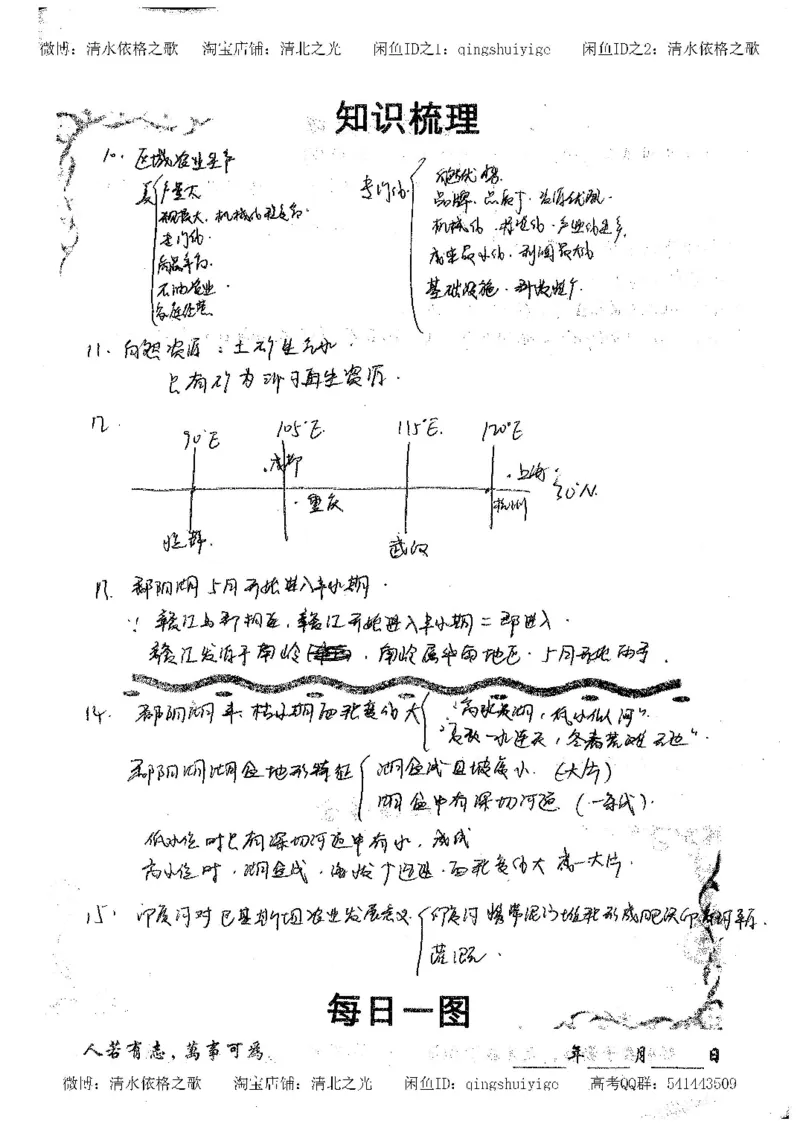 微博：清水依格之歌 淘宝店铺：清北之光 闲鱼ID之1：qingshuiyige 闲鱼ID之2：清水依格之歌
知识梳理
10. 区域农业生产
美 产量大
规模大，机械化程度高.
专门化.
商品率高.
石油农业.
家庭经营
专门化
品牌. 品质↑.
机械化.
成本最小化. 利润最大化
基础设施.
11. 自然资源：土矿生气水.
只有矿为非可再生资源.
12.
90°E 105°E. 115°E. 120°E
.成都 .上海 30°N.
.重庆 杭州
拉萨. 武汉
13. 鄱阳湖5月开始进入丰水期.
∵赣江与鄱相连，赣江开始进入丰水期=鄱进入.
赣江发源于南岭，南岭属华南地区. 5月开始雨季.
14. 鄱阳湖丰、枯水期面积变化大
"高水是湖，低水似河".
鄱阳湖湖盆地形特征
湖盆浅且坡度小. (大片)
湖盆中有深切河道 (一条线).
低水位时只有深切河道中有水，
高水位时，湖盆浅，
面积变化大 成一大片.
15. 印度河对巴基斯坦农业发展意义
印度河携带泥沙堆积形成肥沃印度河平原.
灌溉.
每日一图
人若有志，萬事可為 年 月 日
微博：清水依格之歌 淘宝店铺：清北之光 闲鱼ID：qingshuiyige 高考QQ群：541443509